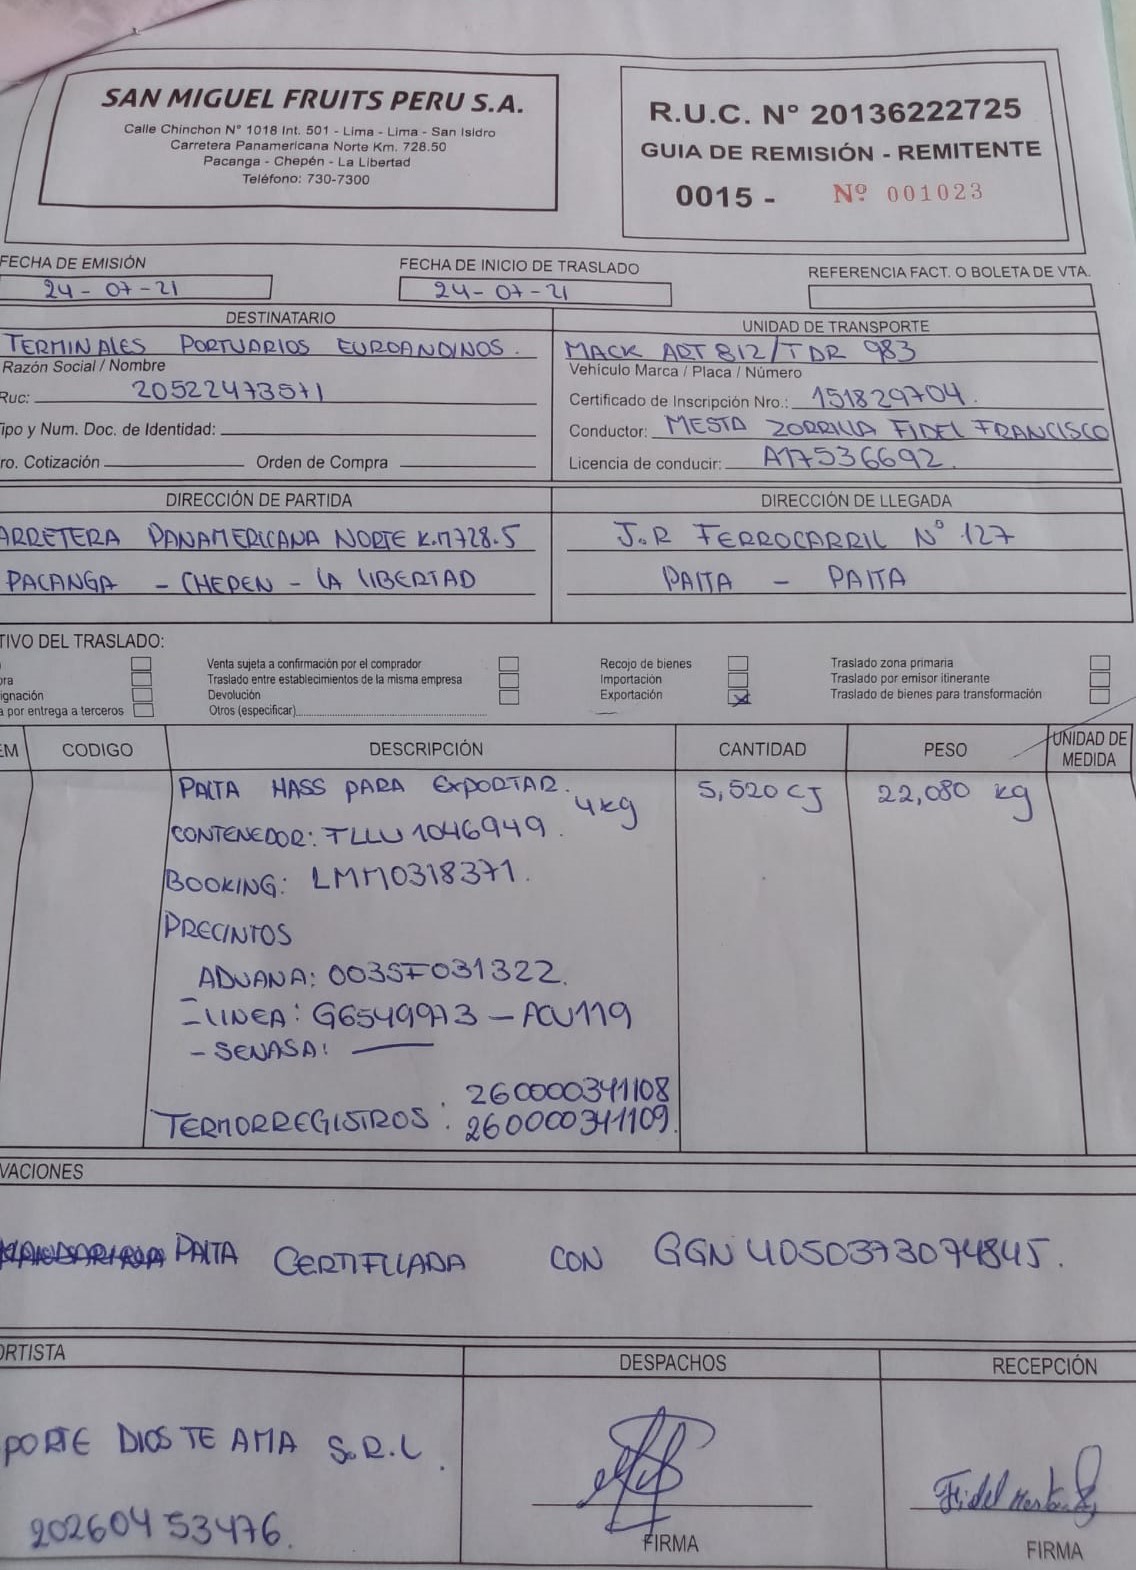 SAN MIGUEL FRUITS PERU S.A.
Calle Chinchon N° 1018 Int. 501 - Lima - Lima - San Isidro
Carretera Panamericana Norte Km. 728.50
Pacanga - Chepén - La Libertad
Teléfono: 730-7300
R.U.C. N° 20136222725
GUIA DE REMISIÓN - REMITENTE
0015 - Nº 001023
FECHA DE EMISIÓN
24-07-21
FECHA DE INICIO DE TRASLADO
24-07-21
REFERENCIA FACT. O BOLETA DE VTA.
DESTINATARIO
TERMINALES PORTUARIOS EUROANDINOS.
Razón Social / Nombre
Ruc: 20522473571
ipo y Num. Doc. de Identidad:
ro. Cotización Orden de Compra
UNIDAD DE TRANSPORTE
MACK ADT 812/TDR 983
Vehículo Marca / Placa / Número
Certificado de Inscripción Nro.: 151829704.
Conductor: MESTA ZORRILLA FIDEL FRANCISCO
Licencia de conducir: A17536692.
DIRECCIÓN DE PARTIDA
ARRETERA PANAMERICANA NORTE K.M 728.5
PACANGA - CHEPEN - LA LIBERTAD
DIRECCIÓN DE LLEGADA
J.R FERROCARRIL N° 127
PAITA - PAITA
TIVO DEL TRASLADO:
ora
ignación
a por entrega a terceros
Venta sujeta a confirmación por el comprador
Traslado entre establecimientos de la misma empresa
Devolución
Otros (especificar)
Recojo de bienes
Importación
Exportación X
Traslado zona primaria
Traslado por emisor itinerante
Traslado de bienes para transformación
EM CODIGO DESCRIPCIÓN CANTIDAD PESO UNIDAD DE MEDIDA
PALTA HASS PARA EXPORTAR. 4kg 5,520 CJ 22,080 kg
CONTENEDOR: TLLU 1046949.
BOOKING: LMM0318371.
PRECINTOS
ADUANA: 0035F031322.
- LINEA: G6549973 - ACU119
- SENASA: —
TERMORREGISTROS: 260000341108
260000341109.
VACIONES
PALTA CERTIFICADA CON GGN 4050373074845.
ORTISTA
PORTE DIOS TE AMA S.R.L.
20260453476.
DESPACHOS
FIRMA
RECEPCIÓN
FIRMA